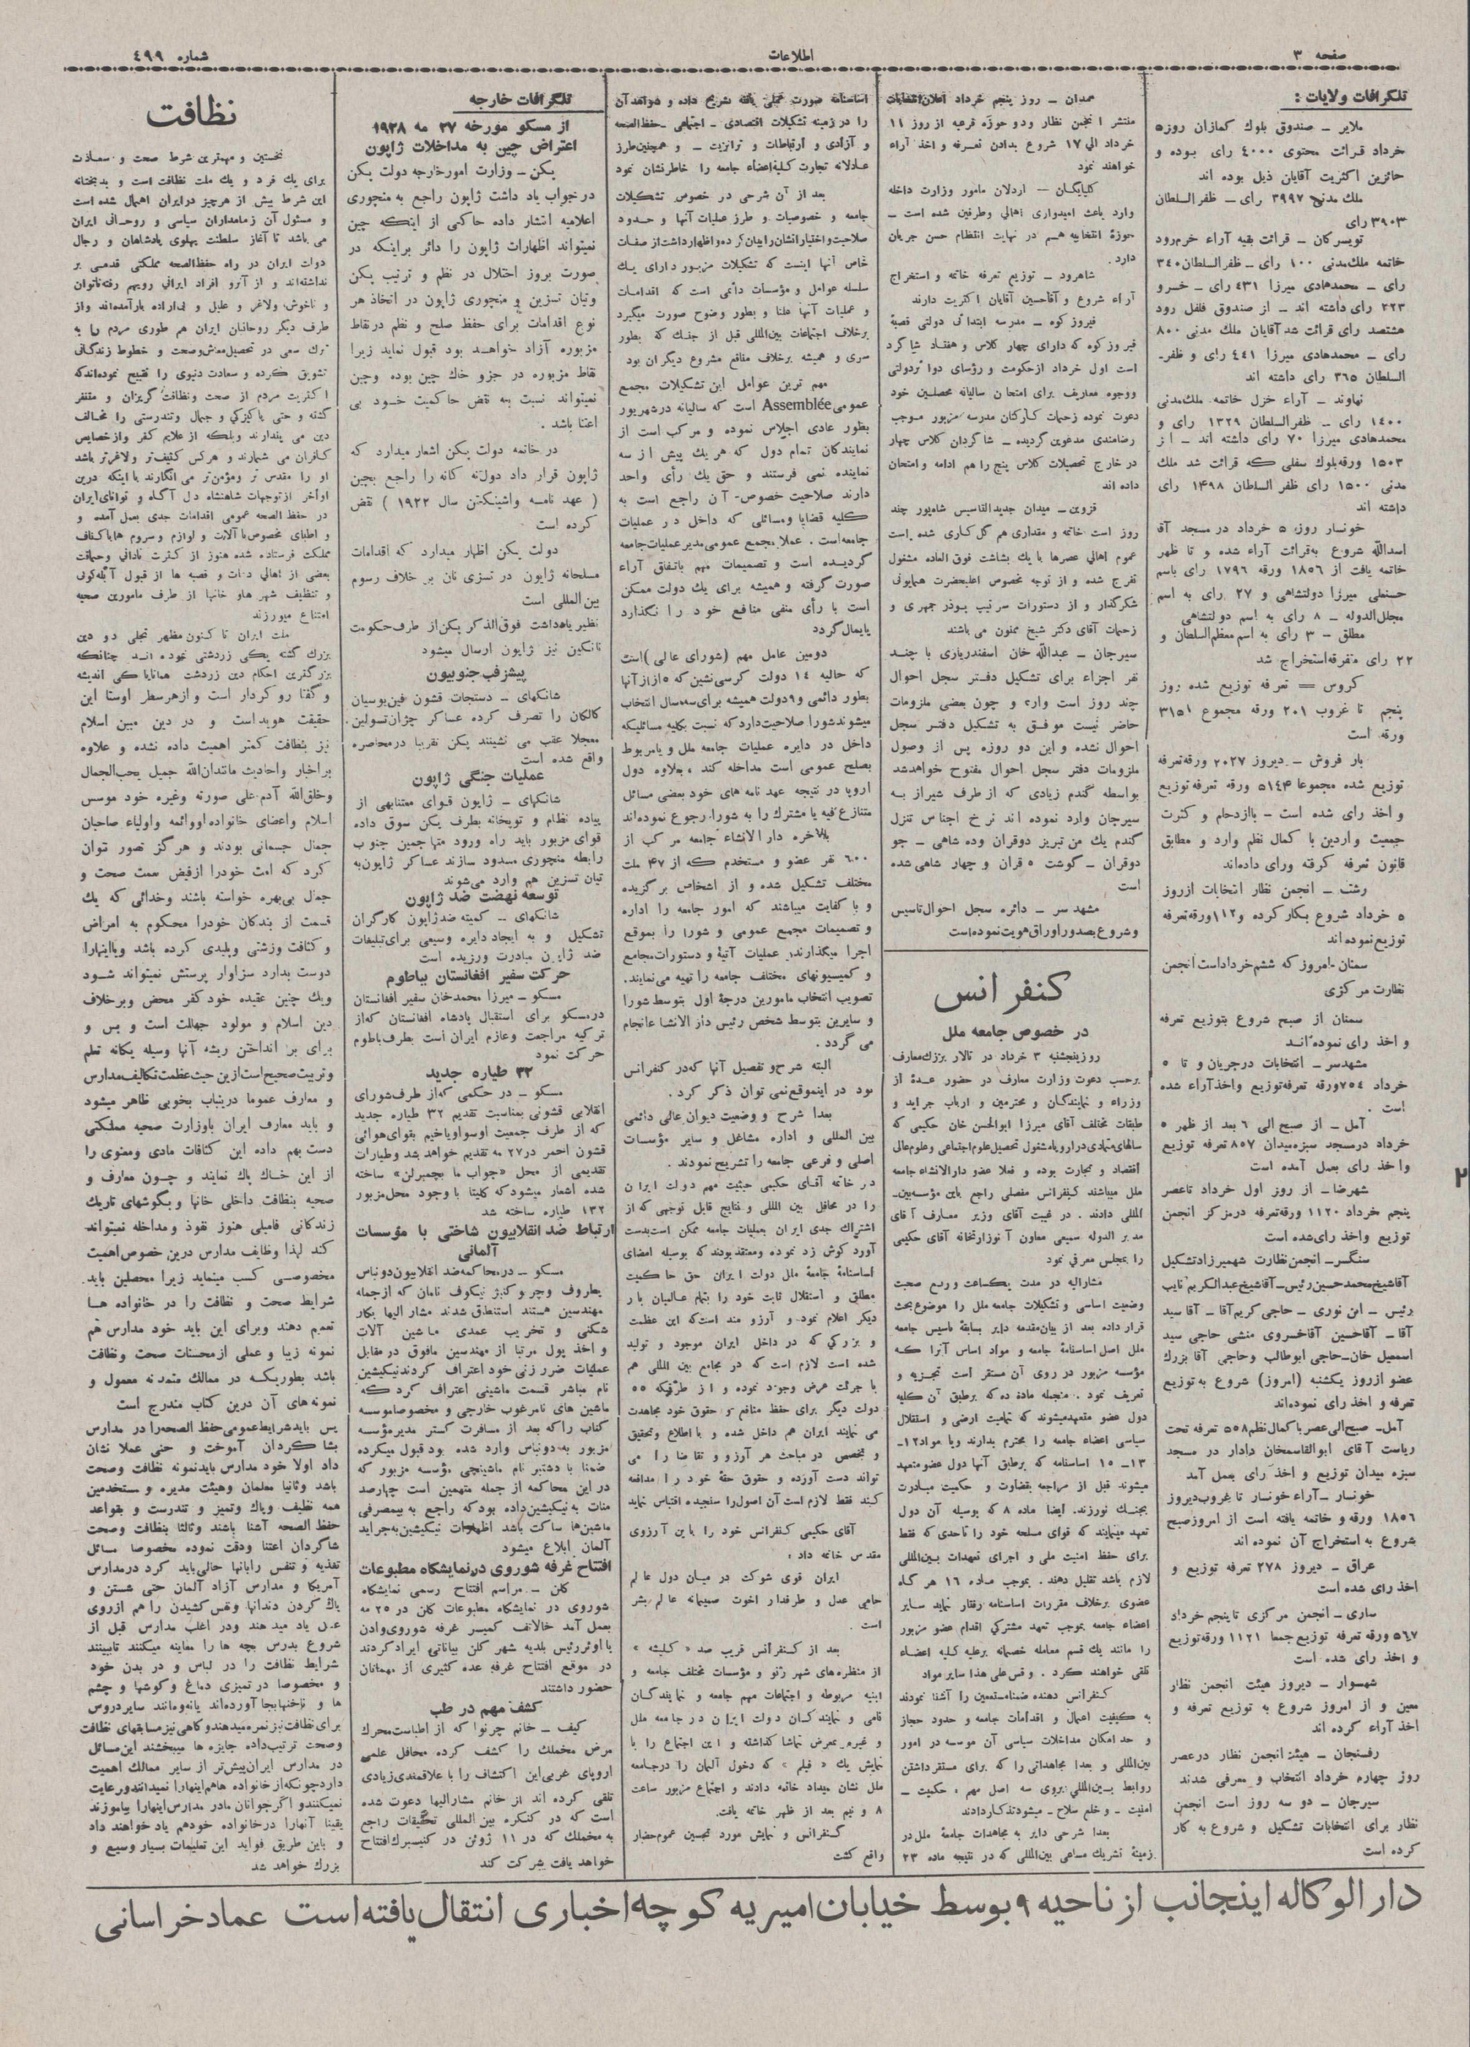 صفحه ۳
اطلاعات
شماره ٤٩٩
تلگرافات ولایات :
ملایر ـ صندوق بلوک کمازان روز ۵
خرداد قرائت محتوی ۴۰۰۰ رای بوده و
حائزین اکثریت آقایان ذیل بوده اند
ملک مدنی ۳۹۹۷ رای ـ ظفرالسلطان
۳۹۰۳ رای
تویسرکان ـ قرائت بقیه آراء خرم‌رود
خاتمه ملک‌مدنی ۱۰۰ رای ـ ظفرالسلطان ۳۴۰
رای ـ محمدهادی میرزا ۴۳۱ رای ـ خسرو
۲۲۳ رای داشته اند ـ از صندوق فلفل رود
هشتصد رای قرائت شد آقایان ملک مدنی ۸۰۰
رای ـ محمدهادی میرزا ۴۴۱ رای و ظفر‌ـ
السلطان ۳۶۵ رای داشته اند
نهاوند ـ آراء خزل خاتمه ملک‌مدنی
۱۴۰۰ رای ـ ظفرالسلطان ۱۳۲۹ رای و
محمدهادی میرزا ۷۰ رای داشته اند ـ از
۱۵۰۳ ورقه‌بلوک سفلی که قرائت شد ملک
مدنی ۱۵۰۰ رای ظفرالسلطان ۱۴۹۸ رای
داشته اند
خونسار روز، ۵ خرداد در مسجد آقا
اسدالله شروع به‌قرائت آراء شده و تا ظهر
خاتمه یافت از ۱۸۵۶ ورقه ۱۷۹۶ رای باسم
حسنعلی میرزا دولتشاهی و ۲۷ رای به اسم
مجلل‌الدوله ـ ۸ رای به اسم دولتشاهی
مطلق ـ ۳ رای به اسم معظم‌السلطان و
۲۲ رای متفرقه‌استخراج شد
کروس ـ تعرفه توزیع شده روز
پنجم تا غروب ۲۰۱ ورقه مجموع ۳۱۵۱
ورقه است
بار فروش ـ دیروز ۲۰۲۷ ورقه‌تعرفه
توزیع شده مجموعا ۵۱۴۴ ورقه تعرفه‌توزیع
و اخذ رای شده است ـ باازدحام و کثرت
جمعیت واردین با کمال نظم وارد و مطابق
قانون تعرفه گرفته ورای داده‌اند
رشت ـ انجمن نظار انتخابات ازروز
۵ خرداد شروع بکار کرده و۱۱۲ورقه‌تعرفه
توزیع‌نموده اند
سمنان‌ـ‌امروز که ششم‌خرداداست‌انجمن
نظارت مرکزی
سمنان از صبح شروع بتوزیع تعرفه
و اخذ رای نموده اند
مشهدسر ـ انتخابات درجریان و تا ۵
خرداد ۷۵۴ورقه تعرفه‌توزیع واخذآراء شده
است .
آمل ـ از صبح الی ۶ بعد از ظهر ۵
خرداد درمسجد سبزه‌میدان ۸۵۷ تعرفه توزیع
واخذ رای بعمل آمده است
شهرضا‌ـ از روز اول خرداد تاعصر
پنجم خرداد ۱۱۲۰ ورقه‌تعرفه درمرکز انجمن
توزیع واخذ رای‌شده است
سنگسر‌ـ انجمن‌نظارت شهمیرزادتشکیل
آقاشیخ‌محمدحسین‌رئیس‌ـ‌آقاشیخ‌عبدالکریم‌نایب
رئیس ـ ابن نوری ـ حاجی کریم‌آقا ـ آقا سید
آقا ـ آقاحسین آقاخسروی منشی حاجی سید
اسمعیل خان‌ـ‌حاجی ابوطالب وحاجی آقا بزرک
عضو ازروز یکشنبه (امروز) شروع به‌توزیع
تعرفه و اخذ رای نموده‌اند
آمل‌ـ صبح‌الی‌عصر باکمال‌نظم۵۵۸ تعرفه تحت
ریاست آقای ابوالقاسمخان دادار در مسجد
سبزه میدان توزیع و اخذ رای بعمل آمد
خونسار ـ‌آراء خونسار تا غروب‌دیروز
۱۸۵۶ ورقه و خاتمه یافته است از امروزصبح
شروع به‌استخراج آن نموده اند
عراق ـ دیروز ۲۷۸ تعرفه توزیع و
اخذ رای شده است
ساری ـ انجمن مرکزی تاپنجم خرداد
۵۶۷ ورقه تعرفه توزیع جمعا ۱۱۲۱ ورقه‌توزیع
و اخذ رای شده است
شهسوار ـ دیروز هیئت انجمن نظار
معین و از امروز شروع به توزیع تعرفه و
اخذ آراء کرده اند
رفسنجان ـ هیئة انجمن نظار درعصر
روز چهارم خرداد انتخاب و معرفی شدند
سیرجان ـ دو سه روز است انجمن
نظار برای انتخابات تشکیل و شروع به کار
کرده است
همدان ـ روز پنجم خرداد اعلان‌انتخابات
منتشر انجمن نظار ودو حوزه قرعیه از روز ۱۱
خرداد الی ۱۷ شروع بدادن تعرفه و اخذ آراء
خواهند نمود
گلپایگان ـ اردلان مامور وزارت داخله
وارد باعث امیدواری اهالی وطرفین شده است ـ
حوزهٔ انتخابیه هم در نهایت انتظام حسن جریان
دارد.
شاهرود ـ توزیع تعرفه خاتمه و استخراج
آراء شروع و آقاحسین آقایان اکثریت دارند
فیروز کوه ـ مدرسه ابتدائی دولتی قصبهٔ
فیروز کوه که دارای چهار کلاس و هفتاد شاگرد
است اول خرداد ازحکومت و رؤسای دوائردولتی
ووجوه معاریف برای امتحان سالیانه محصلین خود
دعوت نموده زحمات کارکنان مدرسه مزبور موجب
رضامندی مدعوین گردیده ـ شاگردان کلاس چهار
در خارج تحصیلات کلاس پنج را هم ادامه و امتحان
داده اند
قزوین‌ـ میدان جدیدالتاسیس شاه‌پور چند
روز است خاتمه و مقداری هم گل کاری شده است
عموم اهالی عصرها با یک بشاشت فوق العاده مشغول
تفرج شده و از توجه مخصوص اعلیحضرت همایونی
شکرگذار و از دستورات سرتیپ بوذرجمهری و
زحمات آقای دکتر شیخ ممنون می باشند
سیرجان ـ عبدالله خان اسفندیاری با چند
نفر اجزاء برای تشکیل دفتر سجل احوال
چند روز است وارد و چون بعضی ملزومات
حاضر نیست موفق به تشکیل دفتر سجل
احوال نشده و این دو روزه پس از وصول
ملزومات دفتر سجل احوال مفتوح خواهدشد
بواسطه گندم زیادی که از طرف شیراز به
سیرجان وارد نموده اند نرخ اجناس تنزل
گندم یک من تبریز دوقران وده شاهی ـ جو
دوقران ـ گوشت ۵ قران و چهار شاهی شده
است
مشهد سر ـ دائره سجل احوال‌تاسیس
وشروع‌بصدوراوراق‌هویت‌نموده‌است
کنفرانس
در خصوص جامعه ملل
روزپنجشنبه ۳ خرداد در تالار بزرک‌معارف
برحسب دعوت وزارت معارف در حضور عدهٔ از
وزراء و نمایندگان و محترمین و ارباب جراید و
طبقات مختلف آقای میرزا ابوالحسن خان حکیمی که
سالهای‌متمادی‌دراروپامشغول تحصیل‌علوم‌اجتماعی وعلوم‌عالی
اقتصاد و تجارت بوده و فعلا عضو دارالانشاء جامعه
ملل میباشند کنفرانس مفصلی راجع باین مؤسسه‌بین‌ـ
المللی دادند. در غیبت آقای وزیر معارف آقای
مدبر الدوله سمیعی معاون آن‌وزارتخانه آقای حکیمی
را بمجلس معرفی نمود
مشارالیه در مدت یکساعت وربع صحبت
وضعیت اساسی و تشکیلات جامعه ملل را موضوع‌بحث
قرارداده بعد از بیان‌مقدمه دایر بسابقهٔ تاسیس جامعه
ملل اصل اساسنامهٔ جامعه و مواد اساس آنرا که
مؤسسه مزبور در روی آن مستقر است تجزیه و
تعریف نمود. منجمله ماده ده که برطبق آن کلیه
دول عضو متعهدمیشوند که تمامیت ارضی و استقلال
سیاسی اعضاء جامعه را محترم بدارند ویا مواد۱۲ـ
۱۳ـ ۱۵ اساسنامه که برطبق آنها دول عضومتعهد
میشوند قبل از مراجعه بقضاوت و حکمیت مبادرت
بجنک نورزند. ایضا ماده ۸ که بوسیله آن دول
تعهد مینمایند که قوای مسلحه خود را تاحدی که فقط
برای حفظ امنیت ملی و اجرای تعهدات بین‌المللی
لازم باشد تقلیل دهند. بموجب ماده ۱۶ هر گاه
عضوی برخلاف مقررات اساسنامه رفتار نماید سایر
اعضاء جامعه بموجب تعهد مشترکی اقدام عضو مزبور
را مانند یک قسم معامله خصمانه برعلیه کلیه اعضاء
تلقی خواهند کرد. وقس‌علی هذا سایر مواد
کنفرانس دهنده ضمناً مستمعین را آشنا نمودند
به کیفیت اعمال و اقدامات جامعه و حدود حجاز
و حد امکان مداخلات سیاسی آن موسسه در امور
بین‌المللی و بعدا مجاهداتی را که برای مستقرداشتن
روابط بین‌المللی بروی سه اصل مهم ، حکمیت ـ
امنیت ـ و خلع سلاح ـ میشودتذکاردادند
بعدا شرحی دایر به مجاهدات جامعهٔ ملل‌در
زمینهٔ تشریک مساعی بین‌المللی که در نتیجه ماده ۲۳
اساسنامه صورت عملی یافته تشریح داده و شواهدآن
را در زمینه تشکیلات اقتصادی ـ اجتماعی ـ‌حفظ‌الصحه
و آزادی و ارتباطات و ترانزیت ـ و همچنین‌طرز
عادلانه تجارت کلیهٔ‌اعضاء جامعه را خاطرنشان نمود
بعد از آن شرحی در خصوص تشکیلات
جامعه و خصوصیات و طرز عملیات آنها و حدود
صلاحیت‌و‌اختیاراتشان‌رابیان‌کرده‌و‌اظهارداشت‌از‌صفات
خاص آنها اینست که تشکیلات مزبور دارای یک
سلسله عوامل و مؤسسات دائمی است که اقدامات
و عملیات آنها علنا و بطور وضوح صورت میگیرد
برخلاف اجتماعات بین‌المللی قبل از جنک که بطور
سری و همیشه برخلاف منافع مشروع دیگران بود
مهم ترین عوامل این تشکیلات مجمع
عمومی Assemblée است که سالیانه درشهریور
بطور عادی اجلاس نموده و مرکب است از
نمایندگان تمام دول که هر یک بیش از سه
نماینده نمی فرستند و حق یک رأی واحد
دارند صلاحیت خصوص‌ـ آن راجع است به
کلیه قضایا ومسائلی که داخل در عملیات
جامعه‌است. عملا مجمع عمومی‌مدیرعملیات‌جامعه
گردیده است و تصمیمات مهم باتفاق آراء
صورت گرفته و همیشه برای یک دولت ممکن
است با رأی منفی منافع خود را نگذارد
پایمال‌گردد
دومین عامل مهم (شورای عالی)است
که حالیه ۱۴ دولت کرسی نشین‌که ۵ازآنها
بطور دائمی و۹ دولت همیشه برای‌سه‌سال انتخاب
میشوندشورا صلاحیت‌داردکه نسبت بکلیه مسائلیکه
داخل در دایره عملیات جامعه ملل ویامربوط
بصلح عمومی است مداخله کند. بعلاوه دول
اروپا در نتیجه عهد نامه های خود بعضی مسائل
متنازع‌فیه یا مشترک را به شورا رجوع نموده‌اند
بالاخره دار الانشاء جامعه مرکب از
۶۰۰ نفر عضو و مستخدم که از ۴۷ ملت
مختلف تشکیل شده و از اشخاص برگزیده
و با کفایت میباشند که امور جامعه را اداره
و تصمیمات مجمع عمومی و شورا را بموقع
اجرا میگذارند. عملیات آتیهٔ و دستورات‌مجامع
و کمیسیونهای مختلف جامعه را تهیه می‌نمایند.
تصویب انتخاب مامورین درجهٔ اول بتوسط شورا
و سایرین بتوسط شخص رئیس دار الانشاء‌انجام
می گردد.
البته شرح‌و تفصیل آنها که‌در کنفرانس
بود در اینموقع‌نمی توان ذکر کرد.
بعدا شرح و وضعیت دیوان عالی دائمی
بین المللی و اداره مشاغل و سایر مؤسسات
اصلی و فرعی جامعه را تشریح نمودند.
در خاتمه آقای حکیمی حیثیت مهم دولت ایران
را در محافل بین المللی و نتایج قابل توجهی که از
اشتراک جدی ایران بعملیات جامعه ممکن است‌بدست
آورد گوش زد نموده ومعتقدبودند که بوسیله امضای
اساسنامهٔ جامعهٔ ملل دولت ایران حق حاکمیت
مطلق و استقلال ثابت خود را بتمام عالمیان بار
دیگر اعلام نمود. و آرزو مند است‌که این عظمت
و بزرگی که در داخل ایران موجود و تولید
شده است لازم است که در مجامع بین المللی هم
با جرئت عرض وجود نموده و از طرفیکه ۵۵
دولت دیگر برای حفظ منافع و حقوق خود مجاهدت
می نمایند ایران هم داخل شده و با اطلاع وتحقیق
و تخصص در مباحث هر آرزو و تقاضا را می
تواند دست آورده و حقوق حقهٔ خود را مدافعه
کند فقط لازم است آن اصول‌را سنجیده اقتباس نماید
آقای حکیمی کنفرانس خود را باین آرزوی
مقدس خاتمه داد :
ایران قوی شوکت در میان دول عالم
حامی عدل و طرفدار اخوت صمیمانه عالم بشر
است
بعد از کنفرانس قریب صد « کلیشه »
از منظره‌های شهر ژنو و مؤسسات مختلف جامعه و
ابنیه مربوطه و اجتماعات مهم جامعه و نمایندگان
نامی و نمایندگان دولت ایران در جامعه ملل
و غیره بمعرض تماشا گذاشته و این اجتماع را با
نمایش یک « فیلم » که دخول آلمان را درجامعه
ملل نشان میداد خاتمه دادند و اجتماع مزبور ساعت
۸ و نیم بعد از ظهر خاتمه یافت.
کنفرانس و نمایش مورد تحسین عموم‌حضار
واقع گشت
تلگرافات خارجه
از مسکو مورخه ۲۷ مه ۱۹۲۸
اعتراض چین به مداخلات ژاپون
پکن ـ وزارت امورخارجه دولت پکن
درجواب یاد داشت ژاپون راجع به منچوری
اعلامیه انتشار داده حاکی از اینکه چین
نمیتواند اظهارات ژاپون را دائر براینکه در
صورت بروز اختلال در نظم و ترتیب پکن
وتیان تسزین و منچوری ژاپون در اتخاذ هر
نوع اقدامات برای حفظ صلح و نظم درنقاط
مزبوره آزاد خواهد بود قبول نماید زیرا
نقاط مزبوره در جزو خاک چین بوده وچین
نمیتواند نسبت به نقض حاکمیت خود بی
اعتنا باشد.
در خاتمه دولت پکن اشعار میدارد که
ژاپون قرار داد دولت‌نه گانه را راجع بچین
( عهد نامه واشینگتن سال ۱۹۲۲ ) نقض
کرده است
دولت پکن اظهار میدارد که اقدامات
مسلحانه ژاپون در تسزی نان بر خلاف رسوم
بین‌المللی است
نظیر یادداشت فوق‌الذکر پکن‌از طرف‌حکومت
نانکین نیز ژاپون ارسال میشود
پیشرفت جنوبیون
شانگهای ـ دستجات قشون فین‌یوسیان
کالگان را تصرف کرده عساکر چژان‌تسولین.
معجلا عقب می نشینند پکن تقریبا درمحاصره
واقع شده است
عملیات جنگی ژاپون
شانگهای ـ ژاپون قوای معتنابهی از
پیاده نظام و توپخانه بطرف پکن سوق داده
قوای مزبور باید راه ورود مهاجمین جنوب
رابطه منچوری مسدود سازند عساکر ژاپون‌به
تیان تسزین هم وارد می‌شوند
توسعه نهضت ضد ژاپون
شانگهای ـ کمیته ضدژاپون کارگران
تشکیل و به ایجاد دایره وسیعی برای‌تبلیغات
ضد ژاپون مبادرت ورزیده است
حرکت سفیر افغانستان بباطوم
مسکو ـ میرزا محمدخان سفیر افغانستان
درمسکو برای استقبال پادشاه افغانستان که‌از
ترکیه مراجعت وعازم ایران است بطرف‌باطوم
حرکت نمود
۳۲ طیاره جدید
مسکو ـ در حکمی که‌از طرف‌شورای
انقلابی قشونی بمناسبت تقدیم ۳۲ طیاره جدید
که از طرف جمعیت اوسواویاخیم بقوای‌هوائی
قشون احمر در۲۷ مه تقدیم خواهد شد وطیارات
تقدیمی از محل «جواب ما بچمبرلن» ساخته
شده اشعار میشودکه کلیتا با وجود محل‌مزبور
۱۳۲ طیاره ساخته شد
ارتباط ضد انقلابیون شاختی با مؤسسات
آلمانی
مسکو ـ درمحاکمه‌ضد انقلابیون‌دونباس
نیکوف نامان که ازجمله
مهندسین هستند استنطاق شدند مشار الیها بکار
شکنی و تخریب عمدی ماشین آلات
و اخذ پول مرتبا از مهندسین مافوق درمقابل
عملیات ضرر زنی خود اعتراف کردندنیکیشین
نام مباشر قسمت ماشینی اعتراف کرد که
ماشین های نامرغوب خارجی و مخصوصاموسسه
کتاب راکه بعد از مسافرت کستر مدیرمؤسسه
مزبور به‌دونباس وارد شده بود قبول میکرده
ضمنا با دشتبر نام ماشینچی مؤسسه مزبور که
در این محاکمه از جمله متهمین است چهارصد
منات به‌نیکیشین‌داده بودکه راجع به‌بیمصرفی
ماشین‌ها ساکت باشد اظهارات نیکیشین‌به‌جراید
آلمان ابلاغ میشود
افتتاح غرفه شوروی درنمایشگاه مطبوعات
کلن ـ مراسم افتتاح رسمی نمایشگاه
شوروی در نمایشگاه مطبوعات کلن در ۲۵ مه
بعمل آمد خالاتف کمیسر غرفه شوروی‌وادن
یا اوئررئیس بلدیه شهر کلن بیاناتی ایرادکردند
در موقع افتتاح غرفه عده کثیری از مهمانان
حضور داشتند
کشف مهم در طب
کیف ـ خانم چرنوا که از اطباست‌محرک
مرض مخملک را کشف کرده محافل علمی
اروپای غربی‌این اکتشاف را با علاقمندی‌زیادی
تلقی کرده اند از خانم مشارالیها دعوت شده
است که در کنکره بین المللی تحقیقات راجع
به‌مخملک که در ۱۱ ژوئن در کنیسبرک‌افتتاح
خواهد یافت شرکت کند
نظافت
نخستین و مهمترین شرط صحت و سعادت
برای یک فرد و یک ملت نظافت است و بدبختانه
این شرط بیش از هرچیز درایران اهمال شده است
و مسئول آن زمامداران سیاسی و روحانی ایران
می باشد تا آغاز سلطنت پهلوی پادشاهان و رجال
دولت ایران در راه حفظ‌الصحه مملکتی قدمی بر
نداشته‌اند و از آنرو افراد ایرانی رویهم رفته‌ناتوان
و ناخوش‌ولاغر و علیل و نمی‌اراده بارآمده‌اند واز
طرف دیگر روحانیان ایران هم طوری مردم را به
ترک سعی در تحصیل‌معاش‌وصحت و خطوط زندگانی
تشویق کرده و سعادت دنیوی را تقبیح نموده‌اندکه
اکثریت مردم از صحت ونظافت گریزان و متنفر
گشته و حتی پاکیزگی و جمال وتندرستی را مخالف
دین می پندارند وبلکه از علایم کفر وازخصایص
کافران می شمارند و هرکس کثیف‌تر و لاغرتر باشد
او را مقدس تر و مؤمن‌تر می انگارند با اینکه درین
اواخر ازتوجهات شاهنشاه دل آگاه و توانای‌ایران
در حفظ‌الصحه عمومی اقدامات جدی بعمل آمده و
و اطبای مخصوص‌با‌آلات و لوازم وسروم هاباکناف
مملکت فرستاده شده هنوز از کثرت نادانی وجهالت
بعضی از اهالی دهات و قصبه ها از قبول آبله‌کوبی
و تنظیف شهر هاو خانها از طرف مامورین صحیه
امتناع میورزند
ملت ایران تا کنون مظهر تجلی دو دین
بزرک گشته یکی زردشتی نموده اند چنانکه
بزرگترین احکام دین زردشت همانا پاکی اندیشه
و گفتا رو کردار است و ازهرسطر اوستا این
حقیقت هویداست و در دین مبین اسلام
نیز بنظافت کمتر اهمیت داده نشده و علاوه
براخبار واحادیث مانندان‌الله جمیل یحب‌الجمال
وخلق‌الله آدم‌علی صورته وغیره خود موسس
اسلام واعضای خانواده‌اووائمه واولیاء صاحبان
جمال جسمانی بودند و هرگز تصور نتوان
کرد که امت خودرا ازفیض سمت صحت و
جمال بی‌بهره خواسته باشند وخدائی که یک
قسمت از بندگان خودرا محکوم به امراض
و کثافت وزشتی وپلیدی کرده باشد ویااینهارا
دوست بدارد سزاوار پرستش نمیتواند شود
ویک چنین عقیده خود کفر محض وبرخلاف
دین اسلام و مولود جهالت است و بس و
برای بر انداختن ریشه آنها وسیله یگانه تعلم
وتربیت‌صحیح‌است‌ازین‌حیث‌عظمت‌تکالیف‌مدارس
و معارف عموما درینباب بخوبی ظاهر میشود
و باید معارف ایران باوزارت صحیه مملکتی
دست بهم داده این کثافات مادی ومعنوی را
از این خاک پاک نمایند و چون معارف و
صحیه بنظافت داخلی خانها و بگوشهای تاریک
زندگانی فامیلی هنوز نفوذ ومداخله نمیتواند
کند لهذا وظایف مدارس درین خصوص‌اهمیت
مخصوصی کسب مینماید زیرا محصلین باید
شرایط صحت و نظافت را در خانواده ها
تعمیم دهند وبرای این باید خود مدارس هم
نمونه زیبا و عملی ازمحسنات صحت ونظافت
باشد بطوریکه در ممالک متمدنه معمول و
نمونه‌های آن درین کتاب مندرج است
پس بایدشرایط‌عمومی‌حفظ الصحه‌را در مدارس
بشاگردان آموخت و حتی عملا نشان
داد اولا خود مدارس بایدنمونه نظافت وصحت
باشد وثانیا معلمان وهیئت مدیره و مستخدمین
همه نظیف وپاک وتمیز و تندرست و بقواعد
حفظ الصحه آشنا باشند وثالثا بنظافت وصحت
شاگردان اعتنا ودقت نموده مخصوصا مسائل
تغذیه و تنفس رابانها حالی‌باید کرد درمدارس
آمریکا و مدارس آزاد آلمان حتی شستن و
پاک کردن دندانها ونفس کشیدن را هم ازروی
علم یاد میدهند ودر اغلب مدارس قبل از
شروع بدرس بچه ها را معاینه میکنند تاببینند
شرایط نظافت را در لباس و در بدن خود
و مخصوصا در تمیزی دماغ وگوشها و چشم
ها و ناخنهابجا آورده‌اند یانه‌ومانند سایردروس
برای نظافت‌نیزنمره‌میدهندوگاهی‌نیزمسابقهای نظافت
وصحت ترتیب‌داده جایزه ها میبخشند این‌مسائل
در مدارس ایران‌بیش‌تر از سایر ممالک اهمیت
داردچونکه‌ازخانواده هاهم‌اینهارا نمیدانندورعایت
نمیکنندو اگرجوانان مادر مدارس‌اینهارا بیاموزند
یقینا آنهارا درخانواده خودهم یادخواهند داد
و باین طریق فواید این تعلیمات بسیار وسیع و
بزرک خواهد شد
دارالوکاله اینجانب از ناحیه ۹ بوسط خیابان امیریه کوچه اخباری انتقال یافته است عماد خراسانی
۲